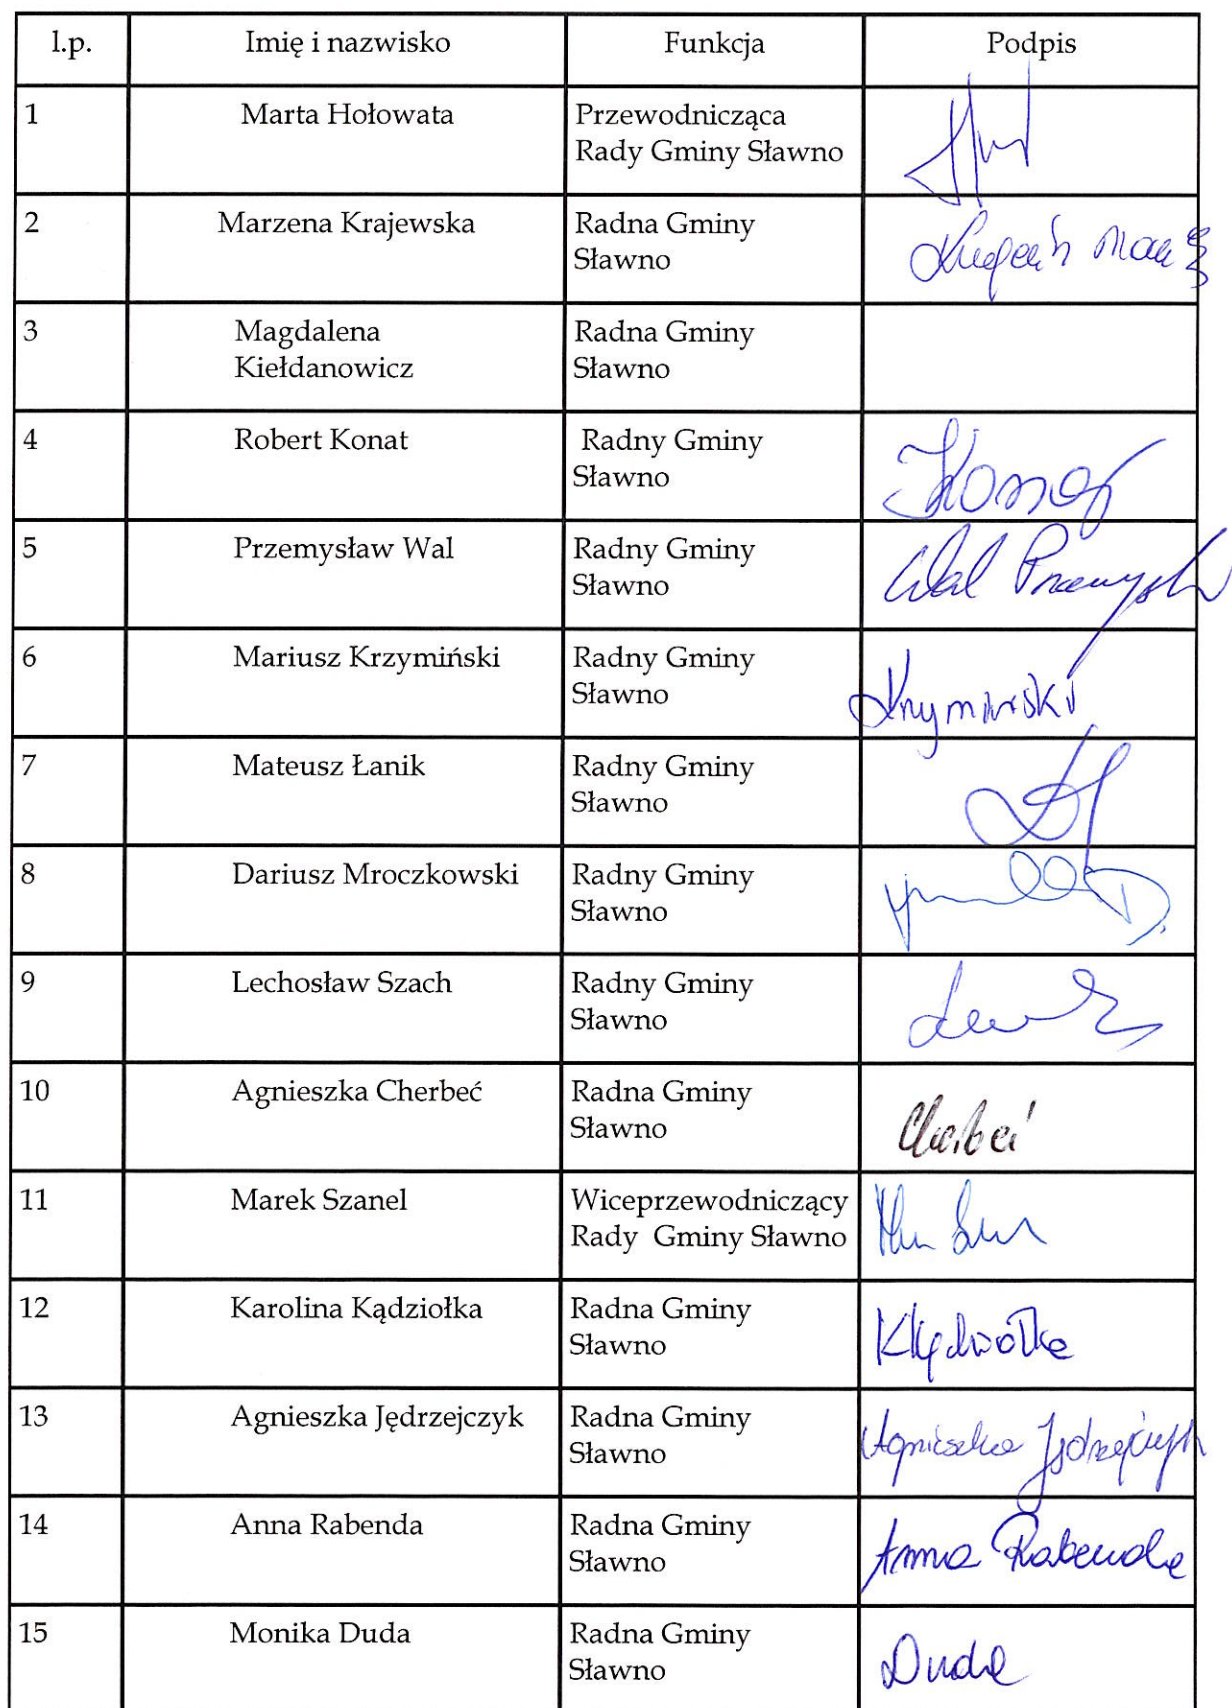 l.p. Imię i nazwisko Funkcja Podpis
1 Marta Hołowata Przewodnicząca
Rady Gminy Sławno
2 Marzena Krajewska Radna Gminy
Sławno
3 Magdalena Radna Gminy
Kiełdanowicz Sławno
4 Robert Konat Radny Gminy
Sławno Konat
5 Przemysław Wal Radny Gminy
Sławno Wal Przemysław
6 Mariusz Krzymiński Radny Gminy
Sławno Krzymiński
7 Mateusz Łanik Radny Gminy
Sławno
8 Dariusz Mroczkowski Radny Gminy
Sławno
9 Lechosław Szach Radny Gminy
Sławno
10 Agnieszka Cherbeć Radna Gminy
Sławno Cherbeć
11 Marek Szanel Wiceprzewodniczący
Rady Gminy Sławno
12 Karolina Kądziołka Radna Gminy
Sławno KKądziołka
13 Agnieszka Jędrzejczyk Radna Gminy
Sławno Agnieszka Jędrzejczyk
14 Anna Rabenda Radna Gminy
Sławno Anna Rabenda
15 Monika Duda Radna Gminy
Sławno Duda